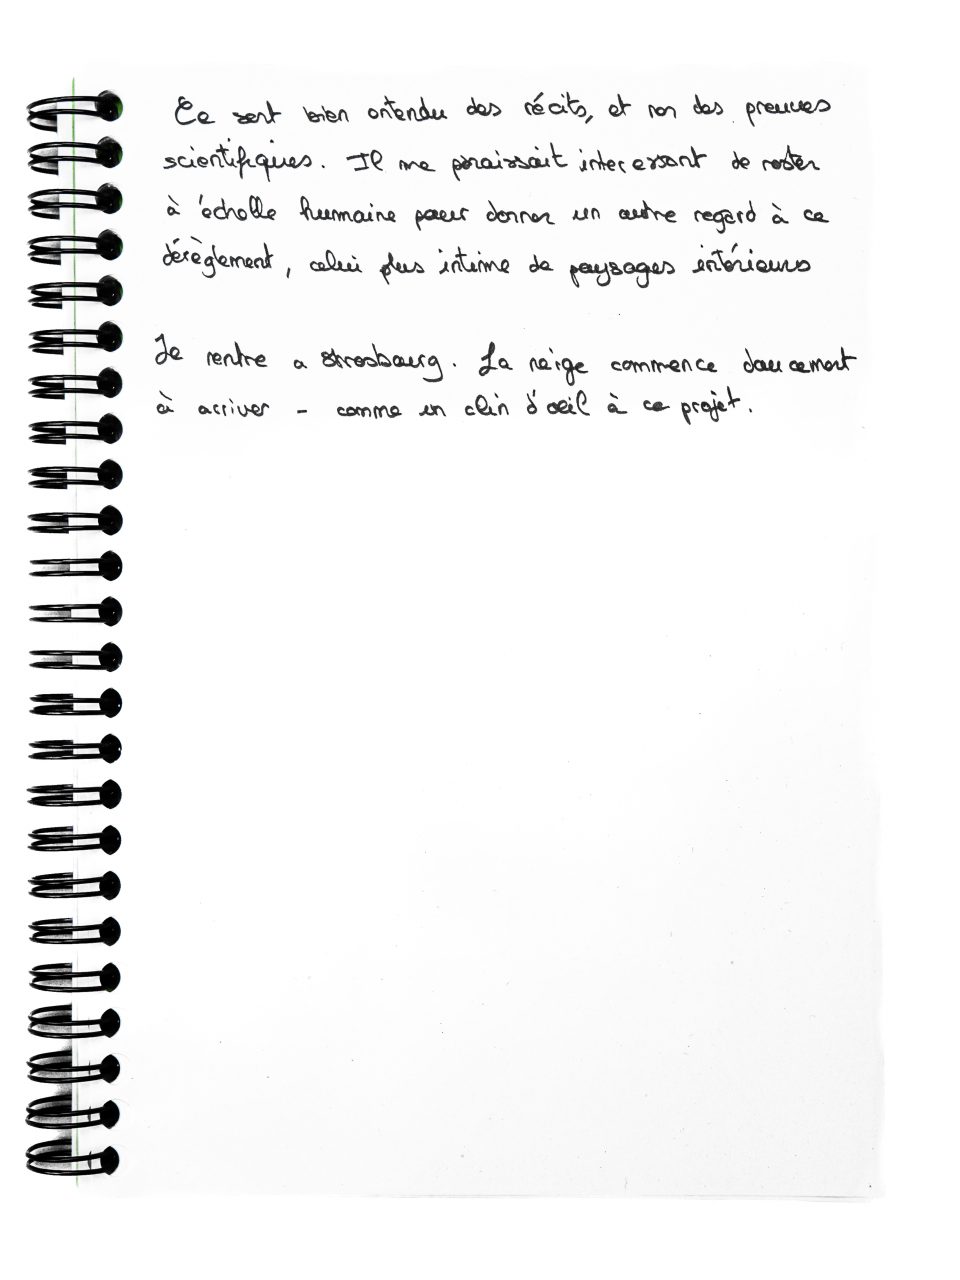 Ce sont bien entendu des récits, et non des preuves
scientifiques. Il me paraissait interessant de rester
à l'échelle humaine pour donner un autre regard à ce
dérèglement, celui plus intime de paysages intérieurs
Je rentre a Strasbourg. La neige commence doucement
à arriver - comme un clin d'oeil à ce projet.